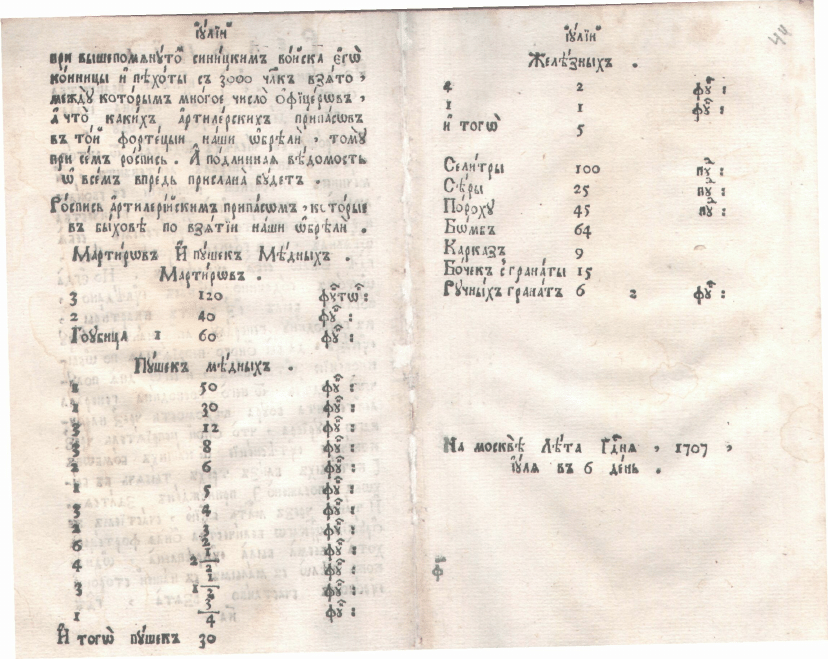 іꙋлїй
при вышепомѧнꙋто синицкимъ войска єгѡ
конницы и пѣхоты съ 3000 члкъ взѧто,
междꙋ которымъ многое число ѻфїцерѡвъ,
а что какихъ артилерскихъ припасѡвъ
въ той фортецыи наши ѡбрѣли, томꙋ
при семъ роспись. А подлинная вѣдомость
ѡ всемъ впредь прислана бꙋдетъ.
Роспись артилерийскимъ припасѡмъ, которые
въ быховѣ по взѧтїи наши ѡбрѣли.
Мартирѡвъ И пꙋшекъ Мѣдныхъ.
Мартирѡвъ.
3 120 фꙋнтѡ:
2 40 фꙋ:
Гоубица 1 60 фꙋ:
Пꙋшекъ мѣдныхъ.
50 фꙋ:
1 30 фꙋ:
3 12 фꙋ:
3 8 фꙋ:
2 6 фꙋ:
1 5 фꙋ:
3 4 фꙋ:
2 3 фꙋ:
6 2 фꙋ:
4 2 1/2 фꙋ:
3 1 1/2 фꙋ:
1 3/4 фꙋ:
И тогѡ пꙋшекъ 30
іꙋлїй
Желѣзныхъ.
4 2 фꙋ:
1 1 фꙋ:
и тогѡ 5
Селитры 100 пꙋ:
Сѣры 25 пꙋ:
Порохꙋ 45 пꙋ:
Бѡмбъ 64
Карказъ 9
Бочекъ с гранаты 15
Рꙋчныхъ гранатъ 6 2 фꙋ:
На москвѣ Лѣта Гдня, 1707,
іꙋля въ 6 день.